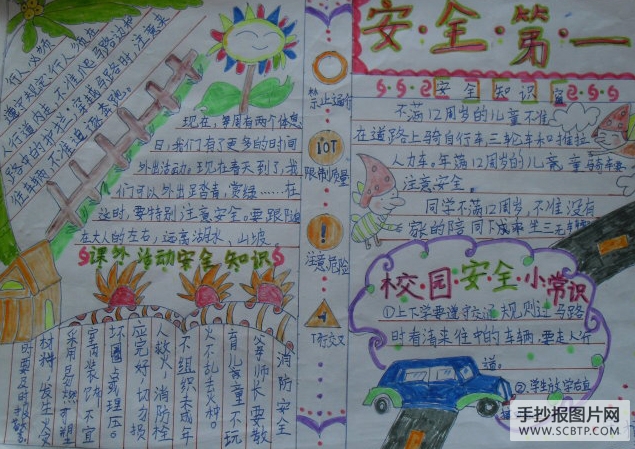 行人必须
遵守规定:行人须在
人行道内走,不准爬马路边和
路中的护栏,穿越马路时,注意来
往车辆,不准追逐奔跑。
现在,每周有两个休息
日,我们有了更多的时间
外出活动。现在春天到了,我
们可以外出踏青,赏绿……在
这时,要特别注意安全。要跟随
在大人的左右,远离湖水、山坡
课外活动安全知识
消防安全
父母师长要教
育儿童不玩
火不乱丢火种。
不组织未成年
人救火,消防栓
应完好,切勿损
坏圈占或埋压。
室内装饰不宜
采用易燃可塑
材料,发生火灾
时要及时报警。
禁止通行
10T
限制质量
注意危险
T行交叉
安·全·第·一
安全知识窗
不满12周岁的儿童不准
在道路上骑自行车,三轮车和推拉
人力车,年满12周岁的儿童
注意安全。
同学不满12周岁,不准没有
家的陪同下成乘坐三无车辆
校·园·安·全·小常识
①上下学要遵守交通规则过马路
时看清来往中的车辆,要走人行
道。
②学生放学后直
手抄报图片网
WWW.SCBTP.COM